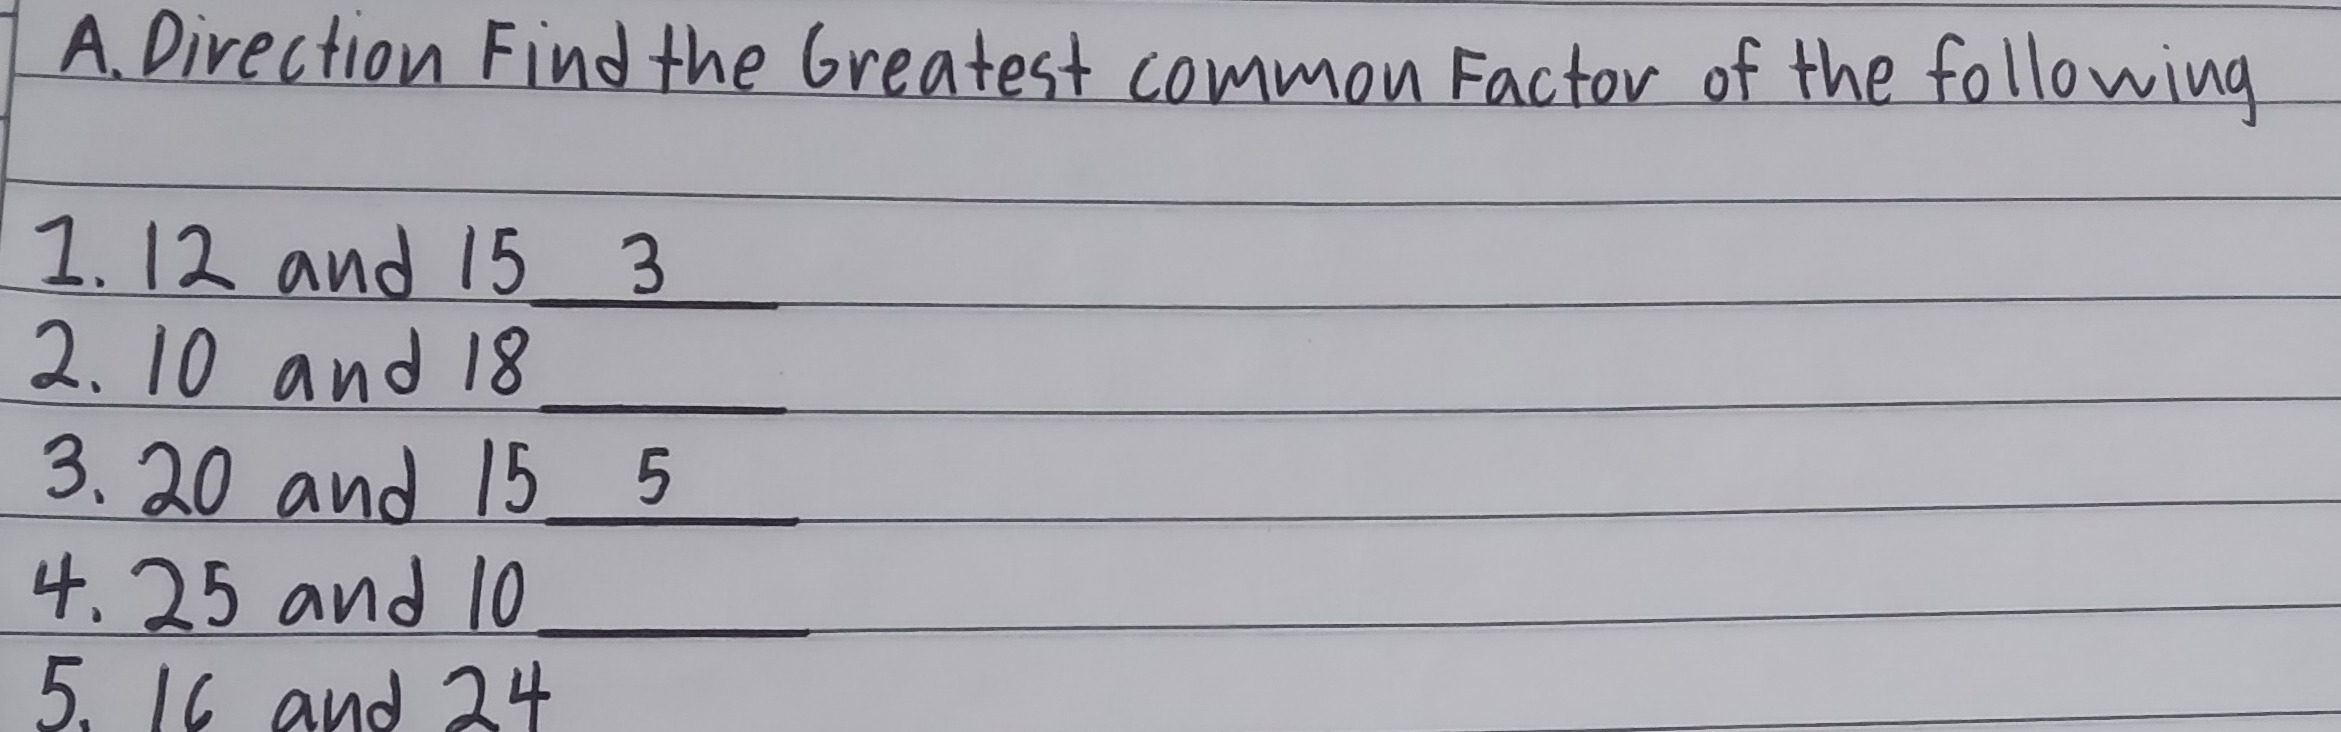 A. Direction Find the Greatest common Factor of the following
1. 12 and 15 3
2. 10 and 18
3. 20 and 15 5
4. 25 and 10
5. 16 and 24